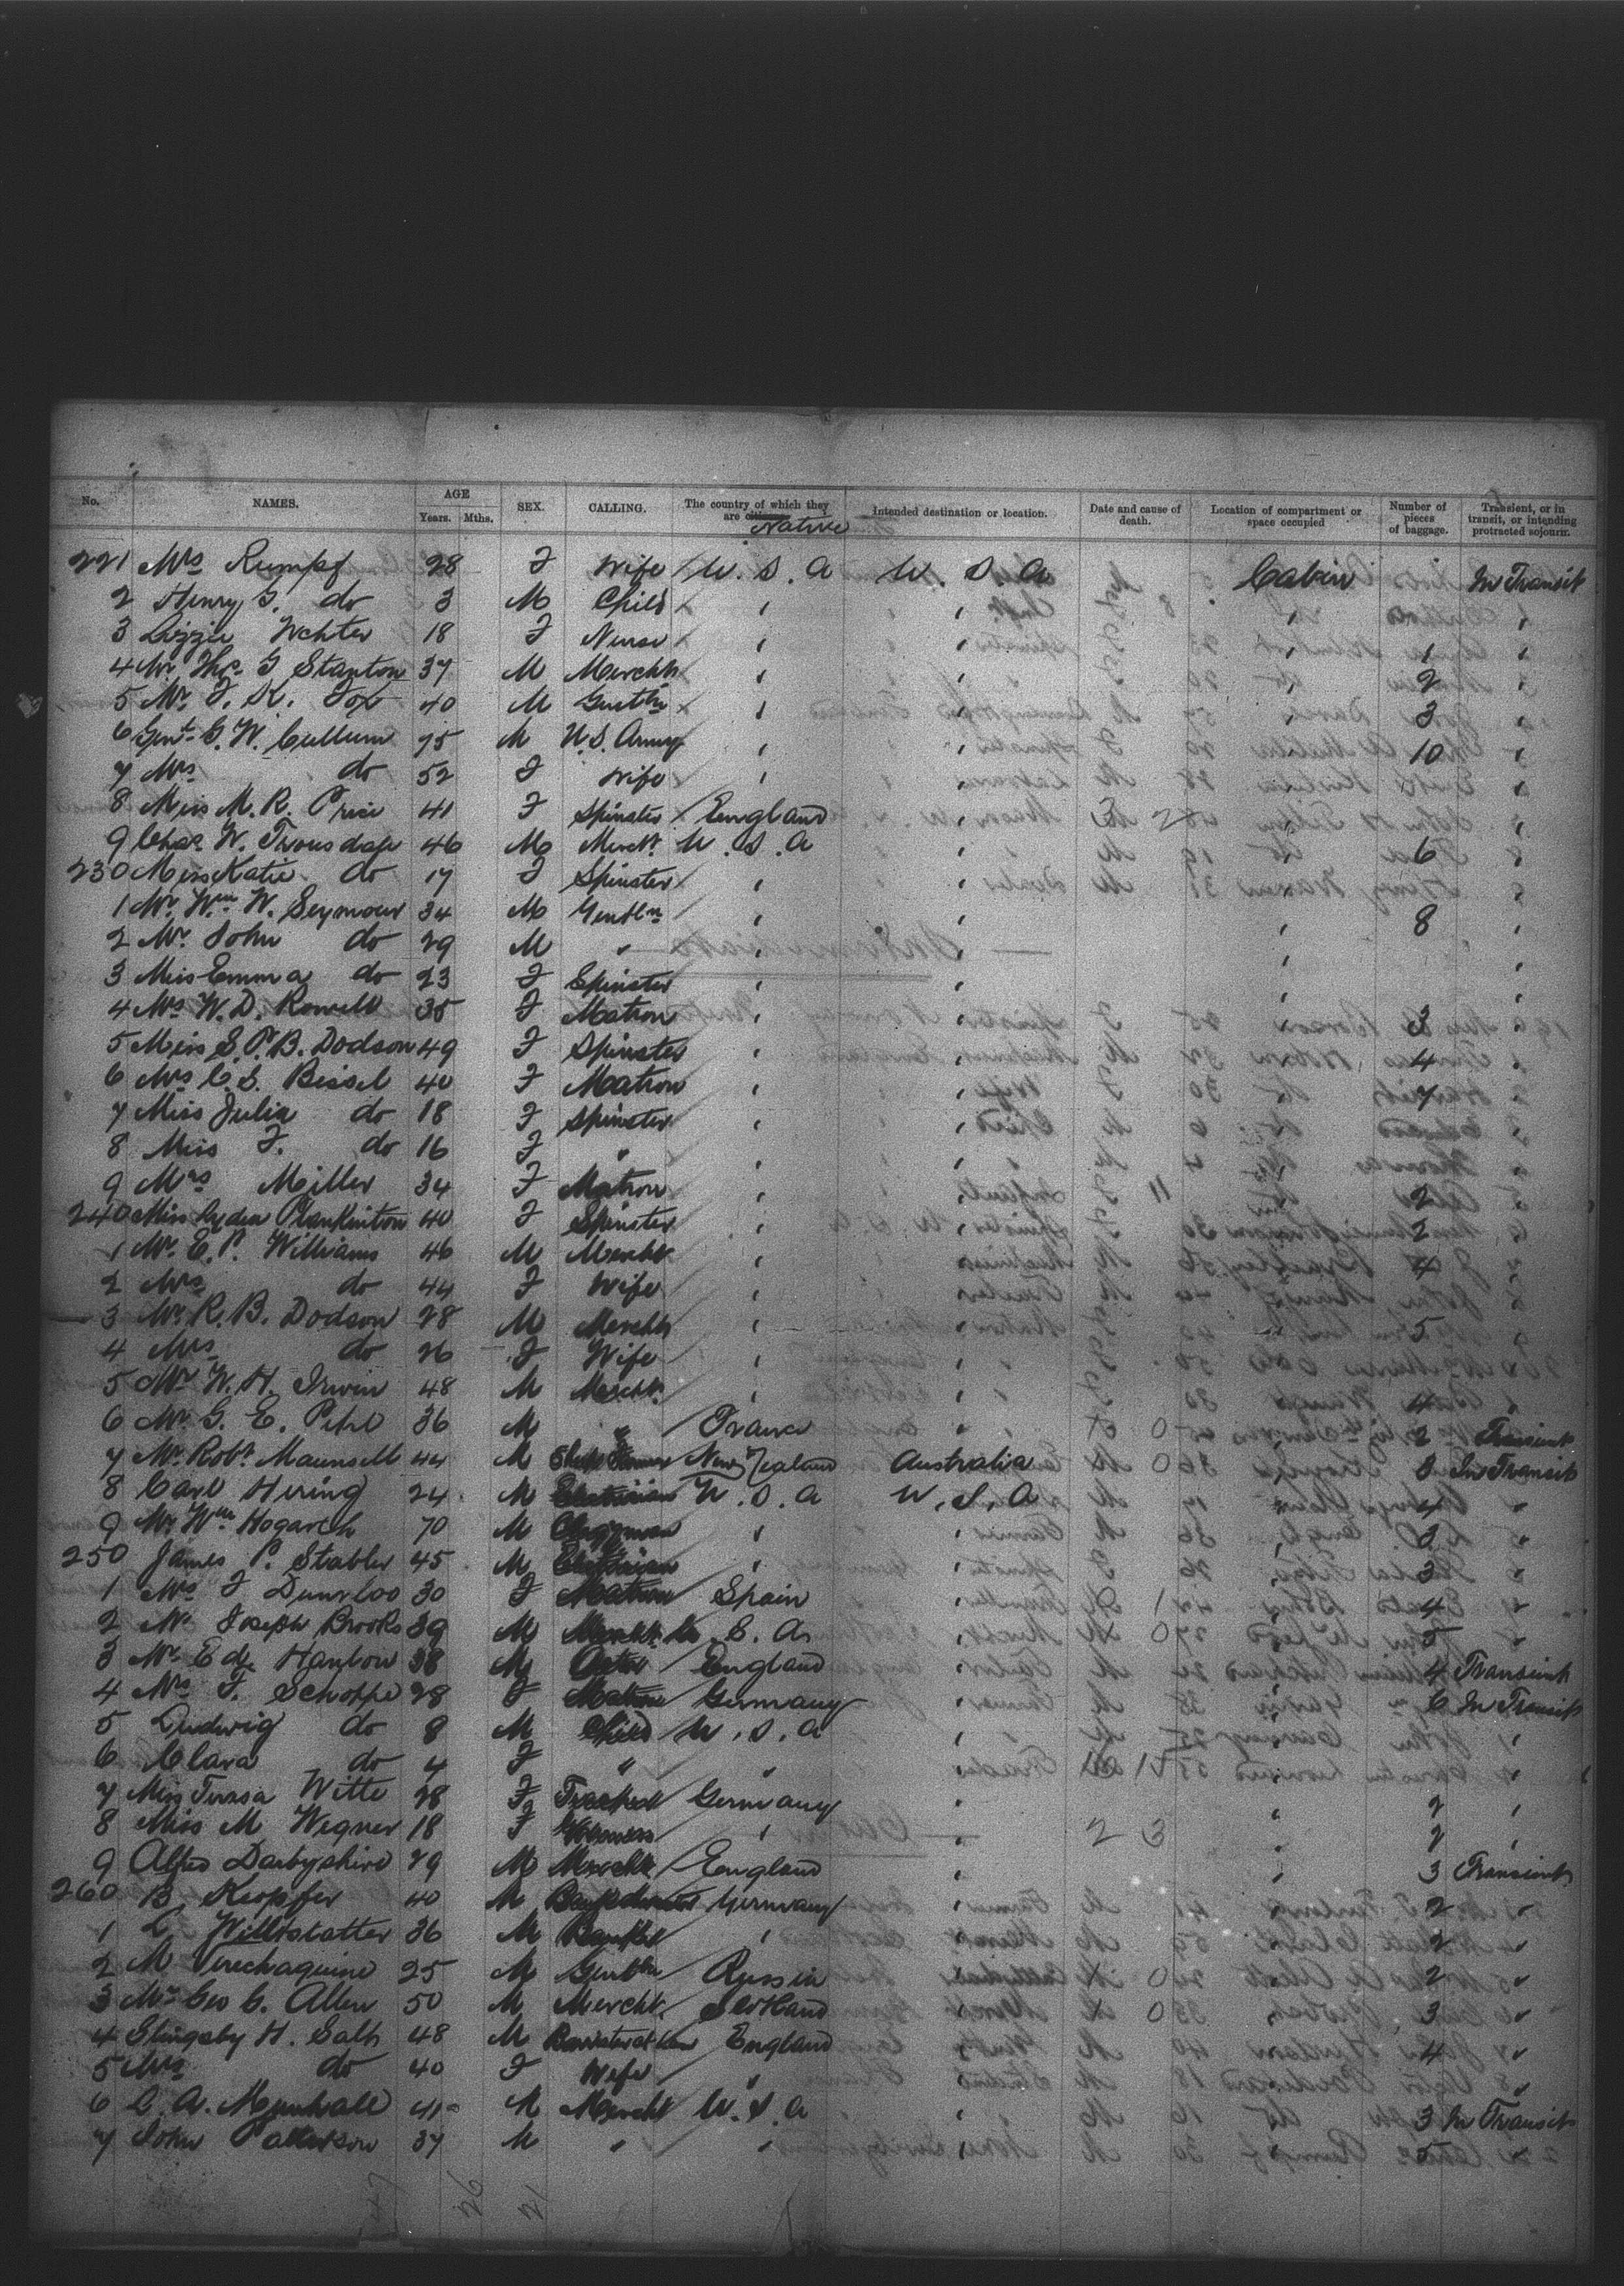 No. NAMES. AGE Years. Mths. SEX. CALLING. The country of which they are citizens Native Intended destination or location. Date and cause of death. Location of compartment or space occupied Number of pieces of baggage. Transient, or in transit, or intending protracted sojourn.
221 Mrs Rumpf 28 F Wife U.S.A U.S.A Cabin In Transit
2 Henry G. do 3 M Child " " " "
3 Lizzie 18 F Nurse " " 1 "
4 Mr Thos G Stanton 37 M Mercht " " " 2 "
5 Mr F. K. Fox 40 M Gentln " " 3 "
6 Genl G. W. Cullum 75 M U.S. Army " " 10 "
7 Mrs do 52 F Wife " "
8 Miss M. R. Price 41 F Spinster England "
9 Chas W. Trousdale 46 M Mercht U.S.A " 6 "
230 Miss Katie do 17 F Spinster " " "
1 Mr Wm W. Seymour 34 M Gentln " " " 8 "
2 Mr John do 29 M " " " " "
3 Miss Emma do 23 F Spinster " " " "
4 Mrs W. D. Rowell 35 F Matron " " 3
5 Miss S. P. B. Dodson 49 F Spinster " " 4
6 Mrs C. S. Bissel 40 F Matron " " 7
7 Miss Julia do 18 F Spinster " "
8 Miss F. do 16 F " " "
9 Mrs Miller 34 F Matron " " 2
240 Miss Lydia Plankinton 40 F Spinster " " 2
1 Mr E. P. Williams 46 M Mercht " " 4
2 Mrs do 44 F Wife " "
3 Mr R. B. Dodson 28 M Mercht " " " 5
4 Mrs do 26 F Wife " "
5 Mr W. H. Irwin 48 M Mercht " " 4 "
6 Mr G. E. Petre 36 M " France " 2 Transient
7 Mr Robt Maunsell 44 M Sheep Farmer New Zealand Australia 3 In Transit
8 Carl Hering 24 M Electrician U.S.A U.S.A " 4 "
9 Mr Wm Hogarth 70 M Clergyman " " 3 "
250 James P. Stabler 45 M Electrician " " 3 "
1 Mrs F 30 F Matron Spain " 4 "
2 Mr Joseph Brooks 39 M Mercht U.S.A. " 5 "
3 Mr Ed. Hanlow 38 M England " 4 Transient
4 Mrs F. Schoppe 28 F Matron Germany " 6 In Transit
5 Ludwig do 8 M Child U.S.A " "
6 Clara do 4 F " " " "
7 Miss Teresa Witte 28 F Germany " 2 "
8 Miss M Wegner 18 F Governess " " " 2 "
9 Alfred Darbyshire 29 M Mercht England " " 3 Transient
260 B Kiopfer 40 M Germany " 2 "
1 L Willstatter 36 M Banker " " 2 "
2 M Verechaguine 25 M Gentln Russia " 2 "
3 Mr Geo C. Allen 50 M Mercht Scotland " 3 "
4 Slingsby H. Salt 48 M Barrister at Law England " 4 "
5 Mrs do 40 F Wife " " "
6 L. A. Mynhall 41 M Mercht U.S.A " 3 In Transit
7 John Patterson 37 M " " " 5 "